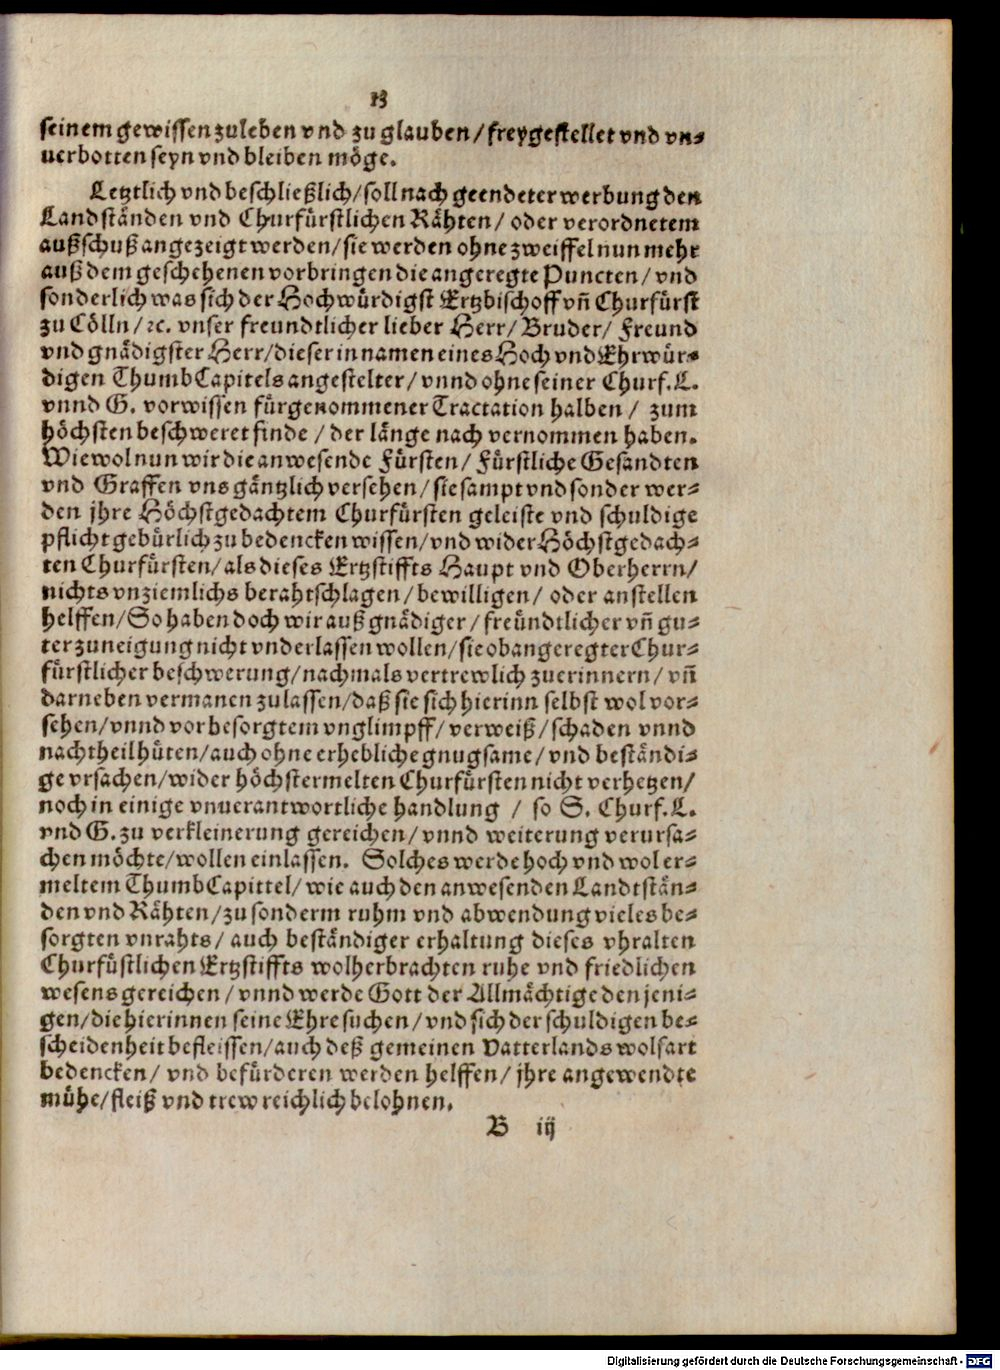 13
seinem gewissen zuleben vnd zu glauben / freygestellet vnd vn⸗
uerbotten seyn vnd bleiben möge.
Letztlich vnd beschließlich / soll nach geendeter werbung den
Landständen vnd Churfürstlichen Rähten / oder verordnetem
außschuß angezeigt werden / sie werden ohne zweiffel nun mehr
auß dem geschehenen vorbringen die angeregte Puncten / vnd
sonderlich was sich der Hochwürdigst Ertzbischoff vñ Churfürst
zu Cölln / ꝛc. vnser freundtlicher lieber Herr / Bruder / Freund
vnd gnädigster Herr / dieser in namen eines Hoch vnd Ehrwür⸗
digen ThumbCapitels angestelter / vnnd ohne seiner Churf. L.
vnnd G. vorwissen fürgenommener Tractation halben / zum
höchsten beschweret finde / der länge nach vernommen haben.
Wiewol nun wir die anwesende Fürsten / Fürstliche Gesandten
vnd Graffen vns gäntzlich versehen / sie sampt vnd sonder wer⸗
den jhre Höchstgedachtem Churfürsten geleiste vnd schuldige
pflicht gebürlich zu bedencken wissen / vnd wider Höchstgedach⸗
ten Churfürsten / als dieses Ertzstiffts Haupt vnd Oberherrn /
nichts vnziemlichs berahtschlagen / bewilligen / oder anstellen
helffen / So haben doch wir auß gnädiger / freündtlicher vñ gu⸗
ter zuneigung nicht vnderlassen wollen / sie obangeregter Chur⸗
fürstlicher beschwerung / nachmals vertrewlich zuerinnern / vñ
darneben vermanen zulassen / daß sie sich hierinn selbst wol vor⸗
sehen / vnnd vor besorgtem vnglimpff / verweiß / schaden vnnd
nachtheil hüten / auch ohne erhebliche gnugsame / vnd beständi⸗
ge vrsachen / wider höchstermelten Churfürsten nicht verhetzen /
noch in einige vnuerantwortliche handlung / so S. Churf. L.
vnd G. zu verkleinerung gereichen / vnnd weiterung verursa⸗
chen möchte / wollen einlassen. Solches werde hoch vnd wol er⸗
meltem ThumbCapittel / wie auch den anwesenden Landtstän⸗
den vnd Rähten / zu sonderm ruhm vnd abwendung vieles be⸗
sorgten vnrahts / auch beständiger erhaltung dieses vhralten
Churfüstlichen Ertzstiffts wolherbrachten ruhe vnd friedlichen
wesens gereichen / vnnd werde Gott der Allmächtige den jeni⸗
gen / die hierinnen seine Ehre suchen / vnd sich der schuldigen be⸗
scheidenheit befleissen / auch deß gemeinen Vatterlands wolfart
bedencken / vnd befürderen werden helffen / jhre angewendte
mühe / fleiß vnd trew reichlich belohnen.
B iij
Digitalisierung gefördert durch die Deutsche Forschungsgemeinschaft - DFG